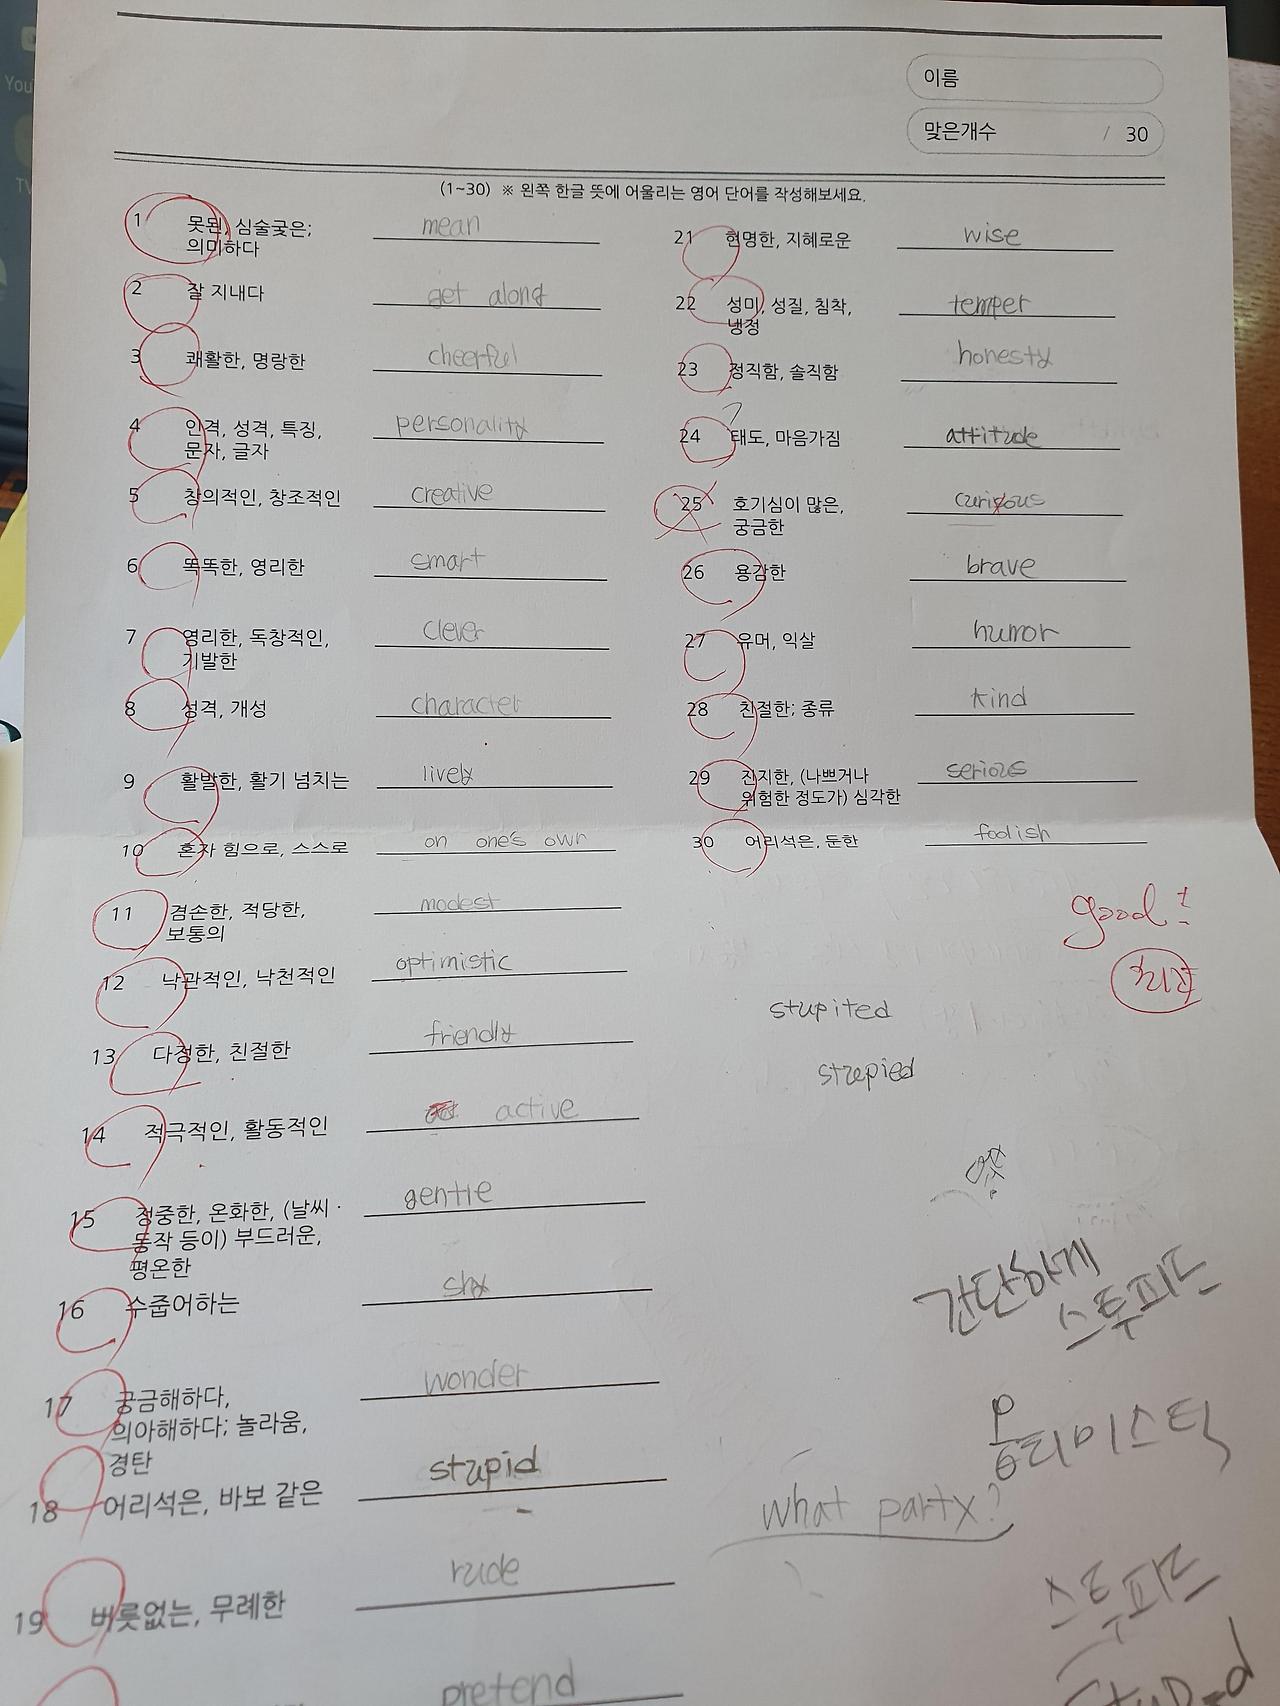 이름
맞은개수 / 30
(1~30) ※ 왼쪽 한글 뜻에 어울리는 영어 단어를 작성해보세요.
1 못된, 심술궂은; mean
의미하다
2 잘 지내다 get along
3 쾌활한, 명랑한 cheerful
4 인격, 성격, 특징, personality
문자, 글자
5 창의적인, 창조적인 creative
6 똑똑한, 영리한 smart
7 영리한, 독창적인, clever
기발한
8 성격, 개성 character
9 활발한, 활기 넘치는 lively
10 혼자 힘으로, 스스로 on one's own
11 겸손한, 적당한, modest
보통의
12 낙관적인, 낙천적인 optimistic
13 다정한, 친절한 friendly
14 적극적인, 활동적인 active
15 정중한, 온화한, (날씨 · gentle
동작 등이) 부드러운,
평온한
16 수줍어하는 shy
17 궁금해하다, wonder
의아해하다; 놀라움,
경탄
18 어리석은, 바보 같은 stupid
19 버릇없는, 무례한 rude
pretend
21 현명한, 지혜로운 wise
22 성미, 성질, 침착, temper
냉정
23 정직함, 솔직함 honesty
24 태도, 마음가짐 attitude
25 호기심이 많은, curious
궁금한
26 용감한 brave
27 유머, 익살 humor
28 친절한; 종류 kind
29 진지한, (나쁘거나 serious
위험한 정도가) 심각한
30 어리석은, 둔한 foolish
good!
stupited
stupied
간단하게
스투피드
옵티미스틱
what party?
스투피드